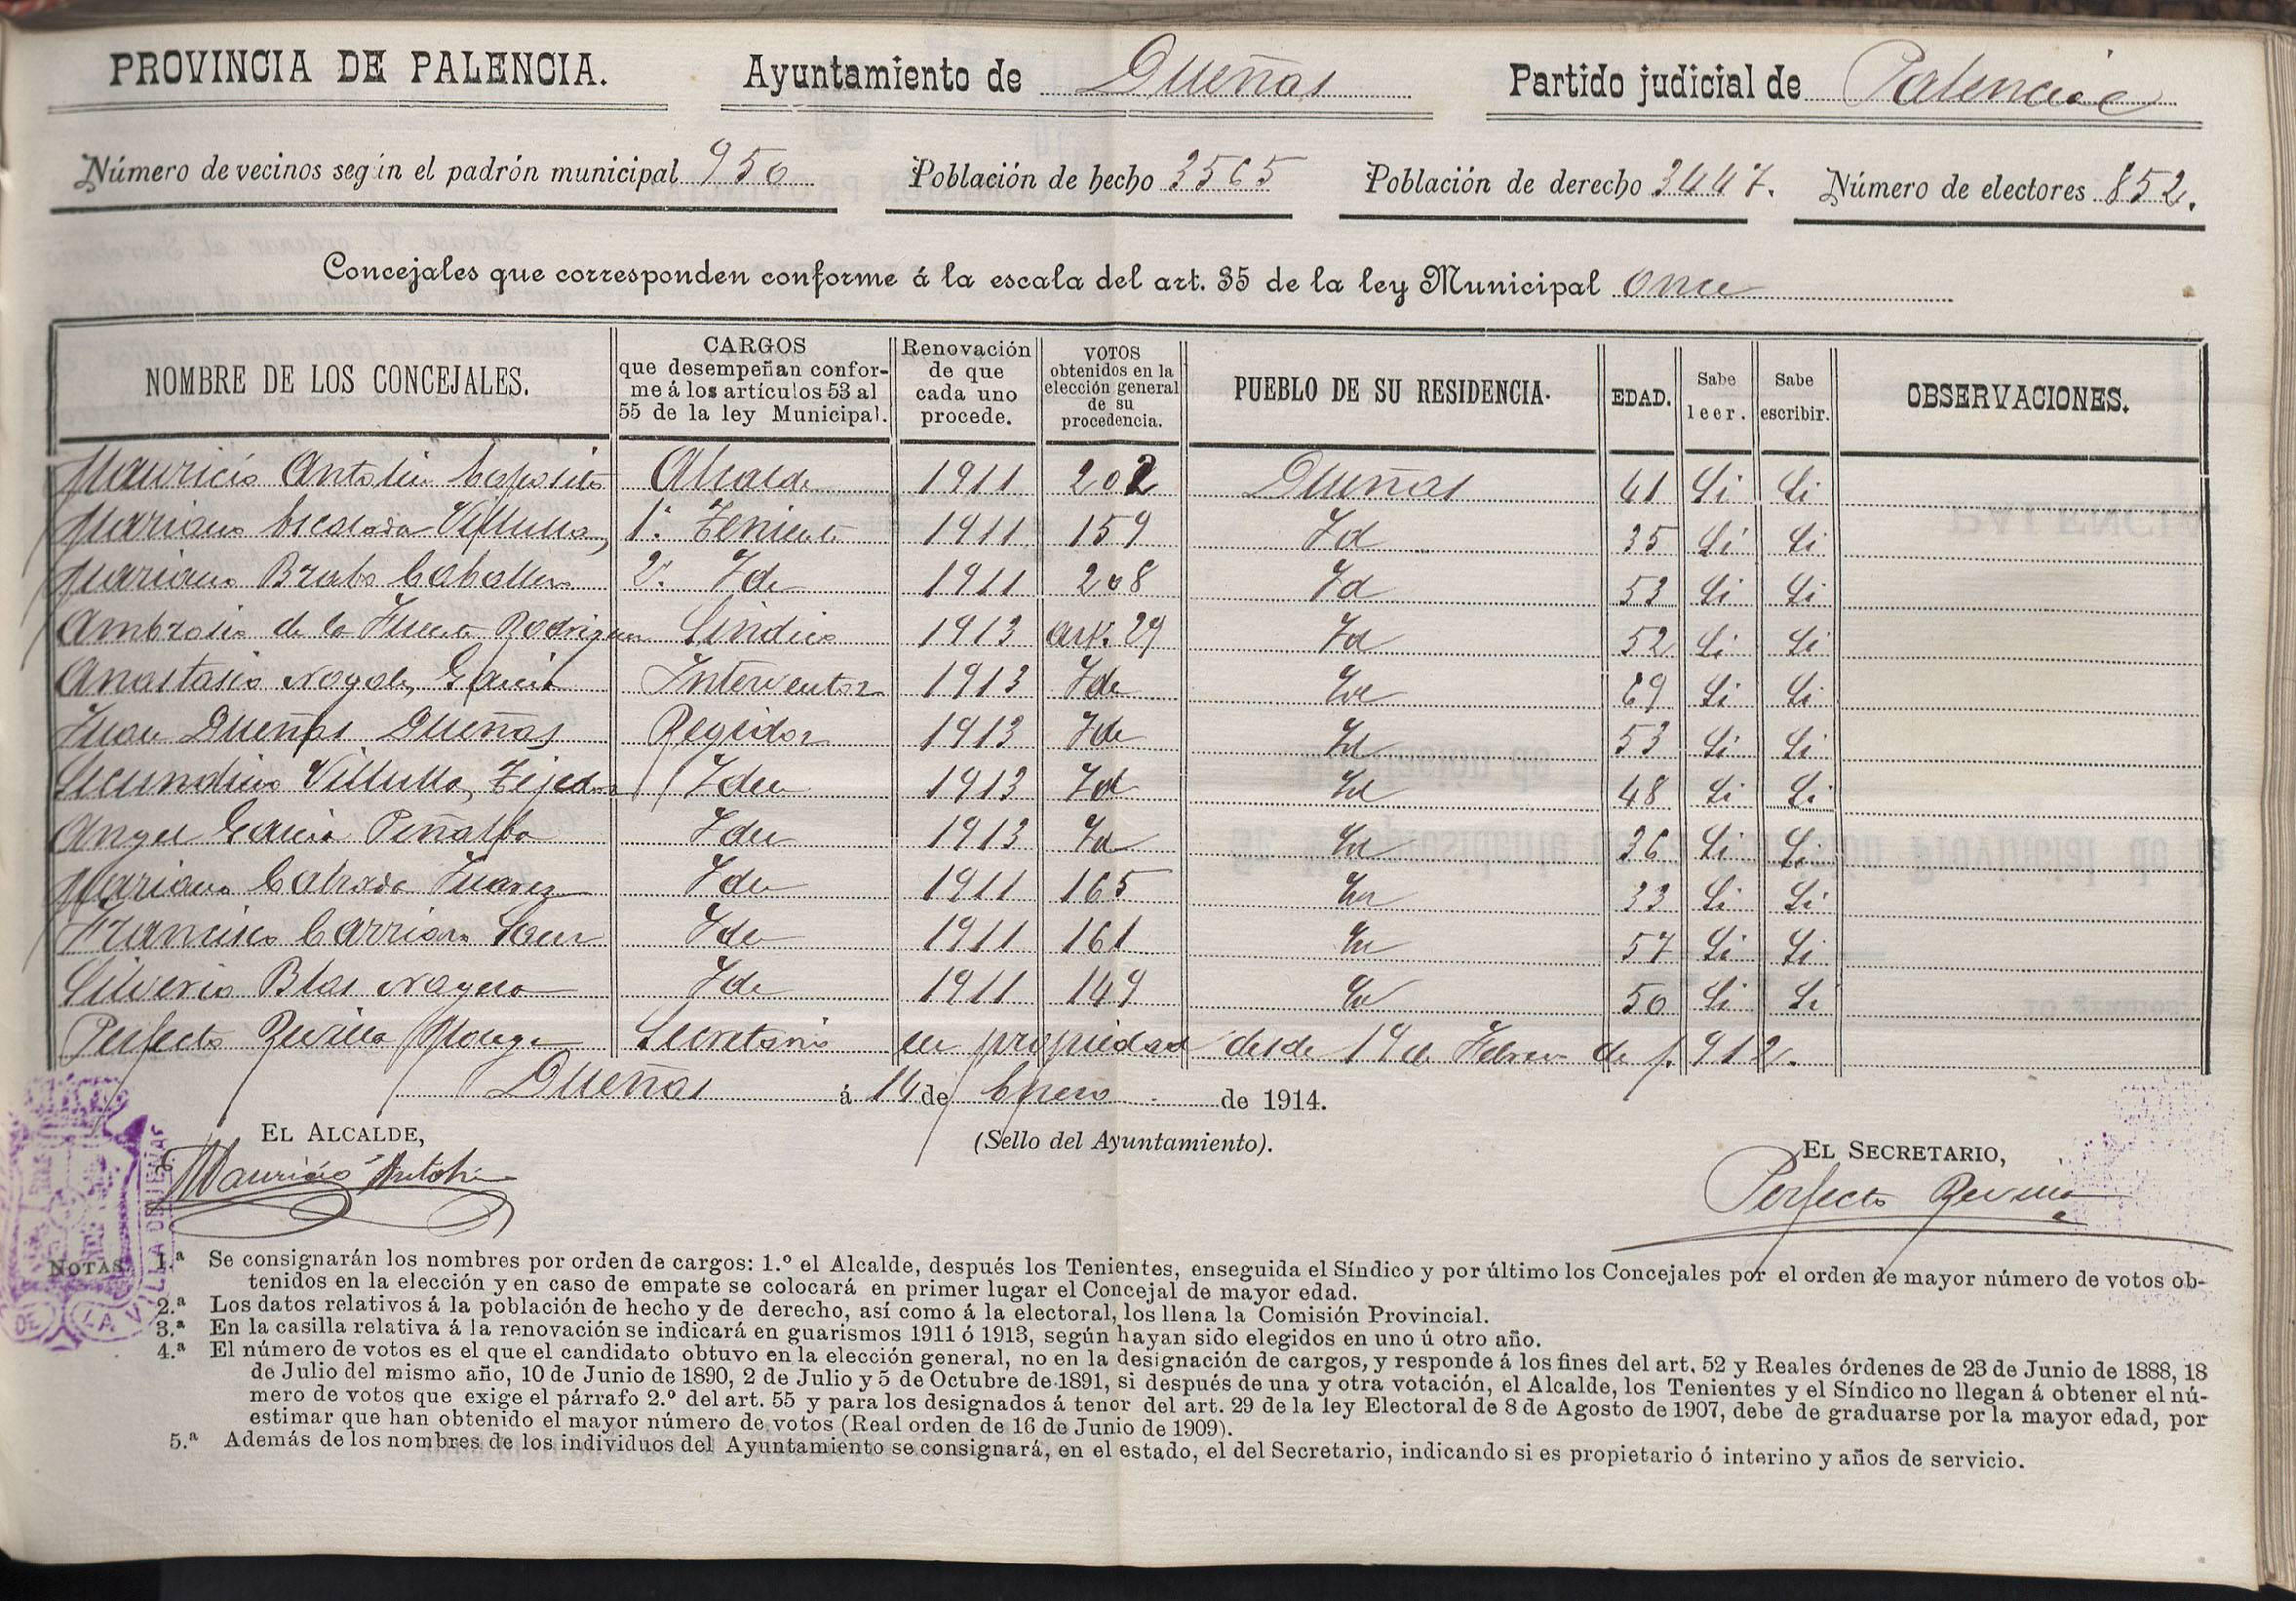 PROVINCIA DE PALENCIA. Ayuntamiento de Dueñas Partido judicial de Palencia
Número de vecinos según el padrón municipal 950 Población de hecho 3565 Población de derecho 3447. Número de electores 852.
Concejales que corresponden conforme á la escala del art. 35 de la ley Municipal once
NOMBRE DE LOS CONCEJALES. CARGOS que desempeñan conforme á los artículos 53 al 55 de la ley Municipal. Renovación de que cada uno procede. VOTOS obtenidos en la elección general de su procedencia. PUEBLO DE SU RESIDENCIA. EDAD. Sabe leer. Sabe escribir. OBSERVACIONES.
Mauricio Antolin Expósito Alcalde 1911 202 Dueñas 41 Si Si
Mariano Escalada Villulla, 1º Teniente 1911 159 Id 35 Si Si
Mariano Brabo Caballero 2º Id 1911 208 Id 53 Si Si
Ambrosio de la Fuente Rodriguez Sindico 1913 art. 29 Id 52 Si Si
Anastasio Garcia Interventor 1913 Id Id 69 Si Si
Juan Dueñas Dueñas Regidor 1913 Id Id 53 Si Si
Secundino Villulla, Tejedor Iden 1913 Id Id 48 Si Si
Angel Garcia Peñalba Iden 1913 Id Id 36 Si Si
Mariano Calzada Iden 1911 165 Id 33 Si Si
Francisco Carrion Iden 1911 161 Id 57 Si Si
Silverio Blas Nagera Iden 1911 149 Id 50 Si Si
Perfecto Revilla Monge Secretario en propiedad desde 19 de Febrero de 1.912.
Dueñas á 14 de Enero de 1914.
EL ALCALDE, (Sello del Ayuntamiento). EL SECRETARIO,
Mauricio Antolin Perfecto Revilla
NOTAS 1.ª Se consignarán los nombres por orden de cargos: 1.º el Alcalde, después los Tenientes, enseguida el Síndico y por último los Concejales por el orden de mayor número de votos ob-
tenidos en la elección y en caso de empate se colocará en primer lugar el Concejal de mayor edad.
2.ª Los datos relativos á la población de hecho y de derecho, así como á la electoral, los llena la Comisión Provincial.
3.ª En la casilla relativa á la renovación se indicará en guarismos 1911 ó 1913, según hayan sido elegidos en uno ú otro año.
4.ª El número de votos es el que el candidato obtuvo en la elección general, no en la designación de cargos, y responde á los fines del art. 52 y Reales órdenes de 23 de Junio de 1888, 18
de Julio del mismo año, 10 de Junio de 1890, 2 de Julio y 5 de Octubre de 1891, si después de una y otra votación, el Alcalde, los Tenientes y el Síndico no llegan á obtener el nú-
mero de votos que exige el párrafo 2.º del art. 55 y para los designados á tenor del art. 29 de la ley Electoral de 8 de Agosto de 1907, debe de graduarse por la mayor edad, por
estimar que han obtenido el mayor número de votos (Real orden de 16 de Junio de 1909).
5.ª Además de los nombres de los individuos del Ayuntamiento se consignará, en el estado, el del Secretario, indicando si es propietario ó interino y años de servicio.